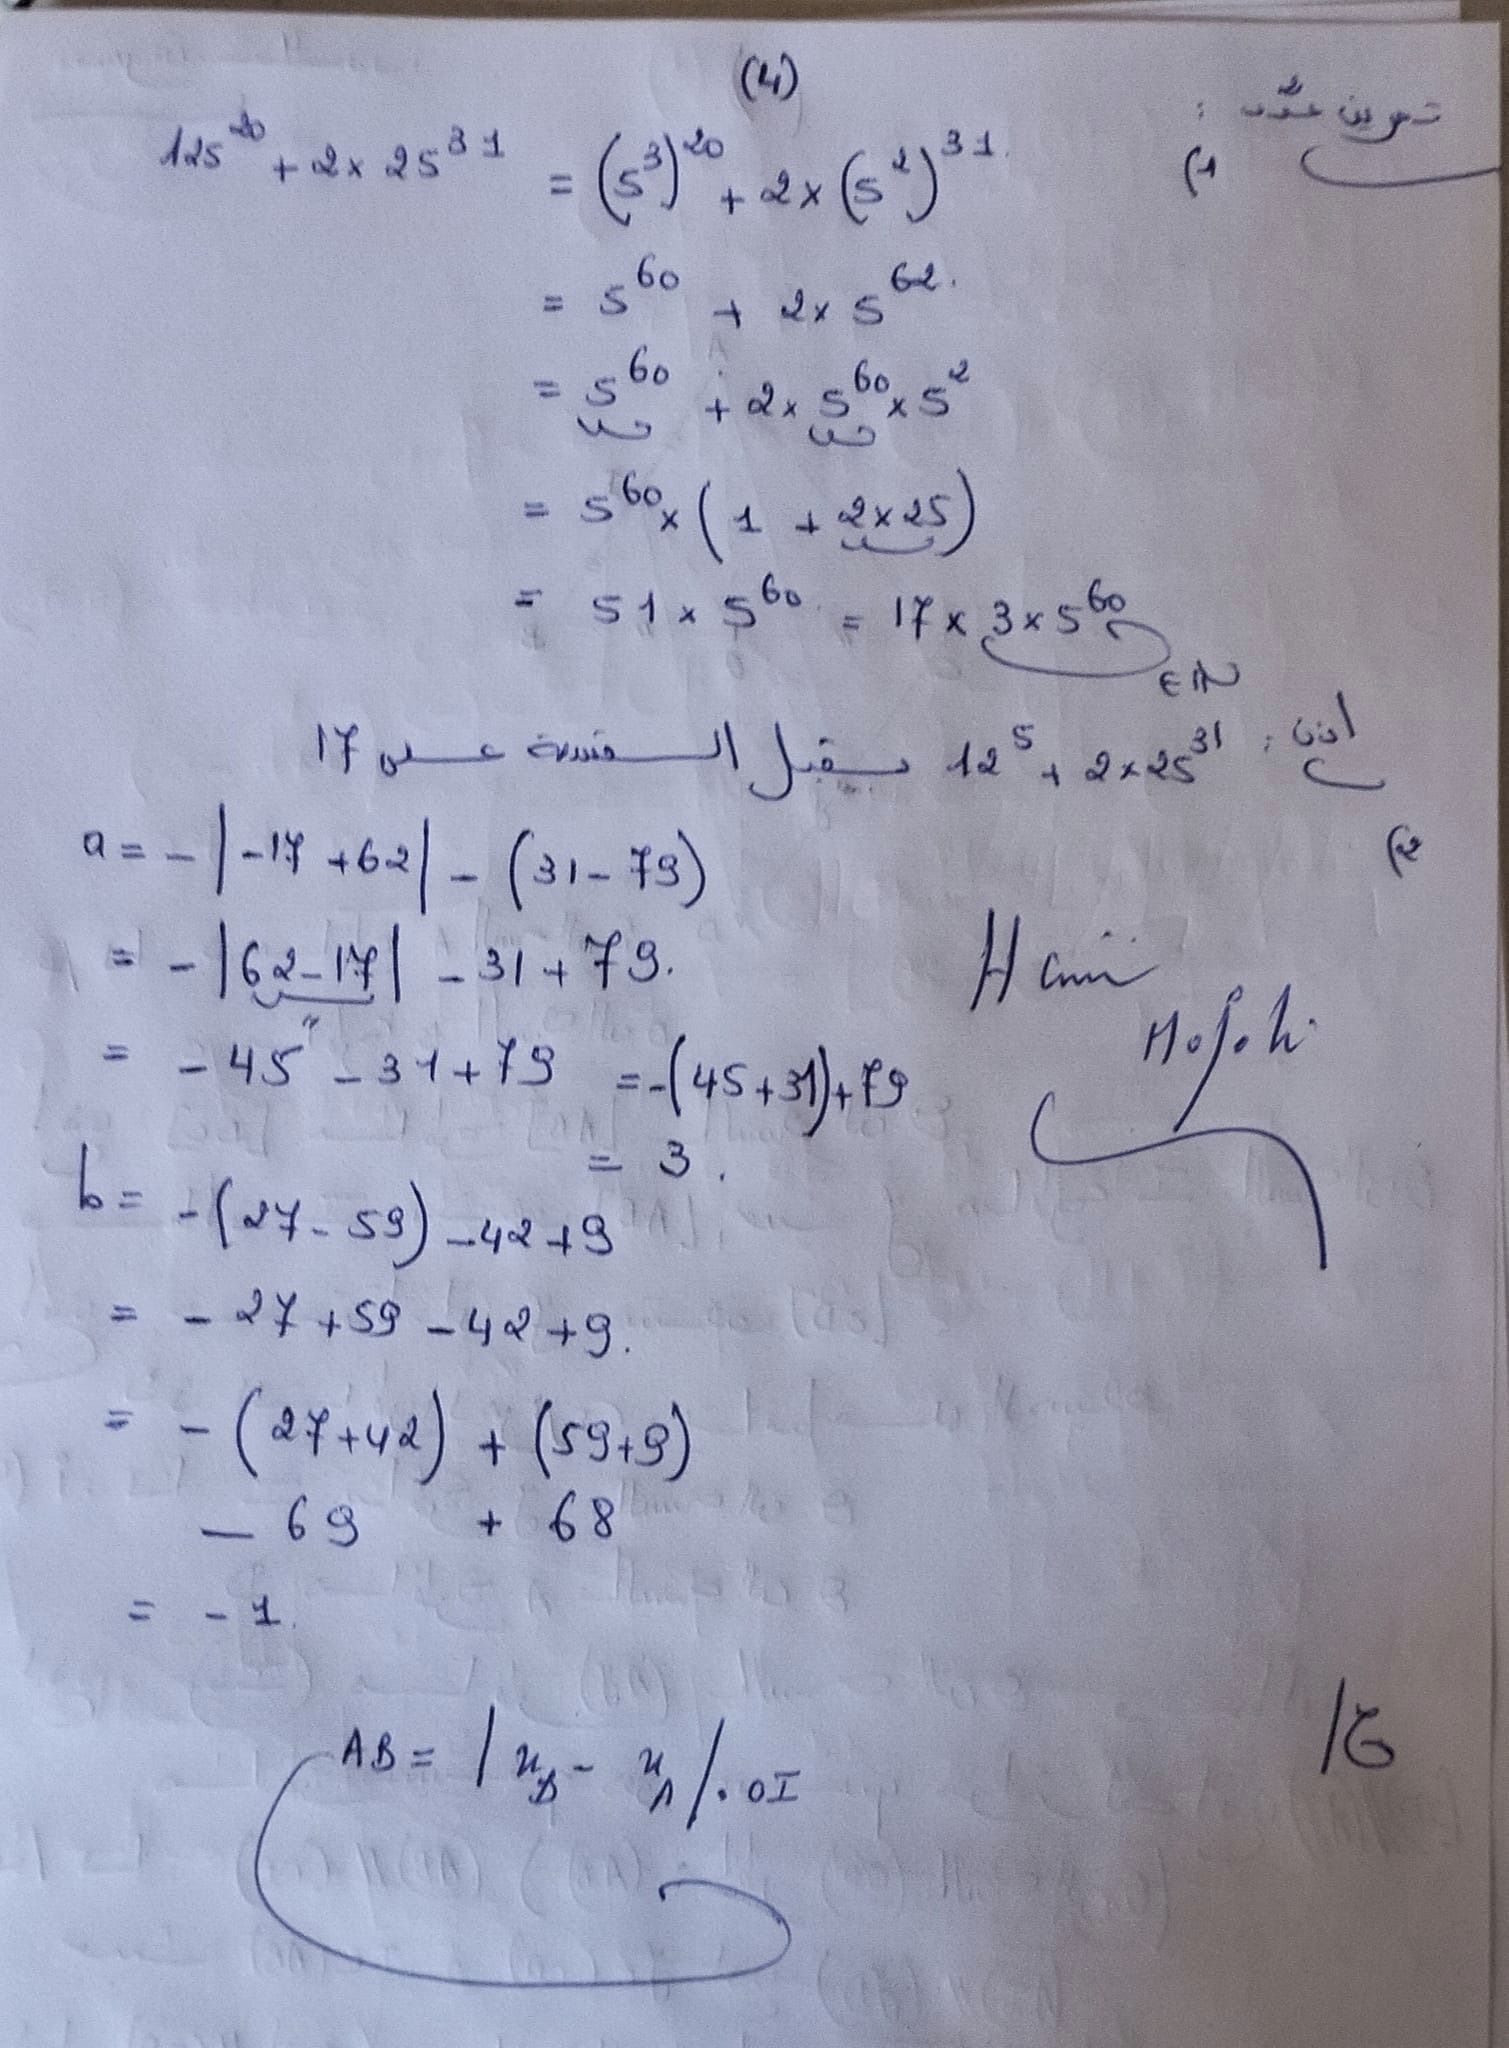 (4)
تمرين عدد 2 :
(1
125^20 + 2 x 25^31 = (5^3)^20 + 2 x (5^2)^31.
= 5^60 + 2 x 5^62.
= 5^60 + 2 x 5^60 x 5^2
= 5^60 x (1 + 2 x 25)
= 51 x 5^60 = 17 x 3 x 5^60
∈ ℕ
اذن : 12^5 + 2 x 25^31 يقبل القسمة على 17
(2
a = - |-17 + 62| - (31 - 79)
= - |62 - 17| - 31 + 79.
= - 45 - 31 + 79 = -(45 + 31) + 79
= 3.
b = - (27 - 59) - 42 + 9
= - 27 + 59 - 42 + 9.
= - (27 + 42) + (59 + 9)
- 69 + 68
= - 1.
ج/
AB = |x_B - x_A|. OI